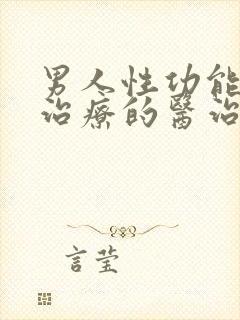 男人性功能
治療的醫治
言莹